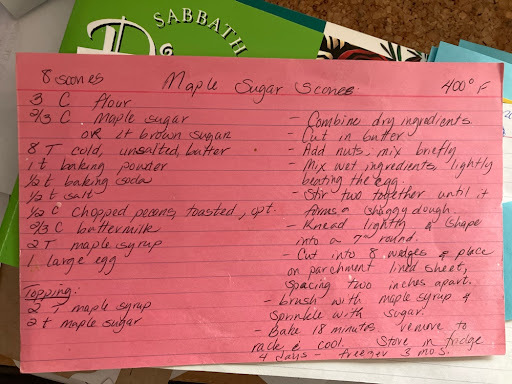 SABBATH
8 scones
Maple Sugar Scones
400° F
3 C flour
2/3 C Maple sugar
OR Lt brown sugar
8 T cold, unsalted, butter
1 t baking powder
1/2 t baking soda
1/2 t salt
1/2 C chopped pecans, toasted, opt.
2/3 C buttermilk
2 T maple syrup
1 large egg
Topping:
2 T maple syrup
2 t maple sugar
- Combine dry ingredients.
- Cut in butter.
- Add nuts, mix briefly
- Mix wet ingredients, lightly
beating the egg.
- Stir two together until it
forms a shaggy dough.
- Knead lightly & shape
into a 7" round.
- Cut into 8 wedges & place
on parchment lined sheet,
spacing two inches apart.
- brush with maple syrup &
sprinkle with sugar.
- Bake 18 minutes remove to
rack & cool. Store in fridge
4 days - freezer 3 mos.